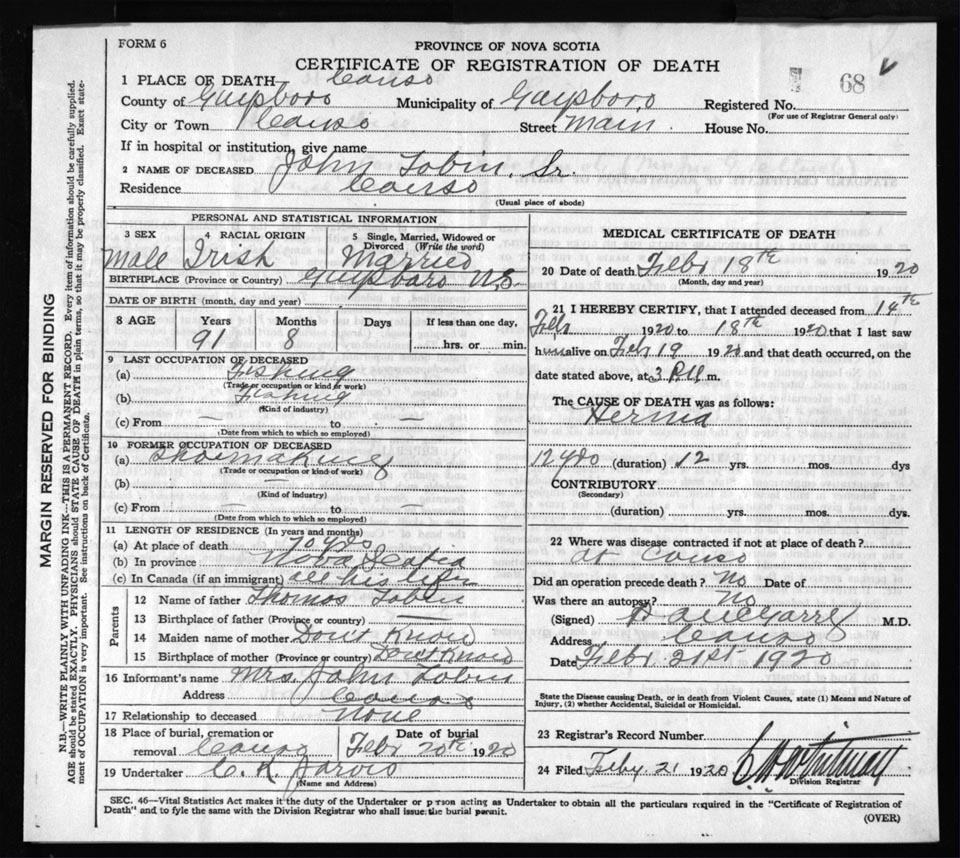 FORM 6
PROVINCE OF NOVA SCOTIA
CERTIFICATE OF REGISTRATION OF DEATH
68
1 PLACE OF DEATH— Canso
County of Guysboro Municipality of Guysboro Registered No.
(For use of Registrar General only)
City or Town Canso Street Main House No.
If in hospital or institution, give name
2 NAME OF DECEASED John Tobin, Sr.
Residence Canso
(Usual place of abode)
PERSONAL AND STATISTICAL INFORMATION
3 SEX 4 RACIAL ORIGIN 5 Single, Married, Widowed or
Divorced (Write the word)
Male Irish Married
BIRTHPLACE (Province or Country) Guysboro N.S.
DATE OF BIRTH (month, day and year)
8 AGE Years Months Days If less than one day,
91 8 hrs. or min.
9 LAST OCCUPATION OF DECEASED
(a) Fishing
(Trade or occupation or kind of work)
(b) Fishing
(Kind of industry)
(c) From — to —
(Date from which to which so employed)
10 FORMER OCCUPATION OF DECEASED
(a) Shoemaking
(Trade or occupation or kind of work)
(b)
(Kind of industry)
(c) From — to —
(Date from which to which so employed)
11 LENGTH OF RESIDENCE (In years and months)
(a) At place of death 70 yrs
(b) In province Nova Scotia
(c) In Canada (if an immigrant) all his life
Parents
12 Name of father Thomas Tobin
13 Birthplace of father (Province or country) —
14 Maiden name of mother Don't Know
15 Birthplace of mother (Province or country) Don't Know
16 Informant's name Mrs. John Tobin
Address Canso
17 Relationship to deceased None
18 Place of burial, cremation or Date of burial
removal Canso Feby 20th 1920
19 Undertaker C. R. Jarvis
(Name and Address)
MEDICAL CERTIFICATE OF DEATH
20 Date of death Feby 18th 1920
(Month, day and year)
21 I HEREBY CERTIFY, that I attended deceased from 14th
Feb 1920 to 18th 1920 that I last saw
him alive on Feb 19 1920 and that death occurred, on the
date stated above, at 3 P.M. m.
The CAUSE OF DEATH was as follows:
Hernia
(duration) 12 yrs. mos. dys
CONTRIBUTORY
(Secondary)
(duration) yrs. mos. dys.
22 Where was disease contracted if not at place of death?
at Canso
Did an operation precede death? No Date of
Was there an autopsy? No
(Signed) M.D.
Address Canso
Date Feby 21st 1920
State the Disease causing Death, or in death from Violent Causes, state (1) Means and Nature of
Injury, (2) whether Accidental, Suicidal or Homicidal.
23 Registrar's Record Number
24 Filed Feby 21 1920 Whitman
Division Registrar
SEC. 46—Vital Statistics Act makes it the duty of the Undertaker or person acting as Undertaker to obtain all the particulars required in the "Certificate of Registration of
Death" and to fyle the same with the Division Registrar who shall issue the burial permit.
(OVER)
MARGIN RESERVED FOR BINDING
N.B.—WRITE PLAINLY WITH UNFADING INK—THIS IS A PERMANENT RECORD. Every item of information should be carefully supplied.
AGE should be stated EXACTLY. PHYSICIANS should STATE CAUSE OF DEATH in plain terms, so that it may be properly classified. Exact state-
ment of OCCUPATION is very important. See instructions on back of Certificate.